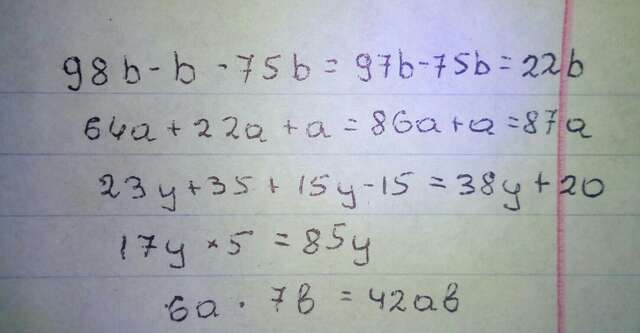 98b - b - 75b = 97b - 75b = 22b
64a + 22a + a = 86a + a = 87a
23y + 35 + 15y - 15 = 38y + 20
17y × 5 = 85y
6a · 7b = 42ab